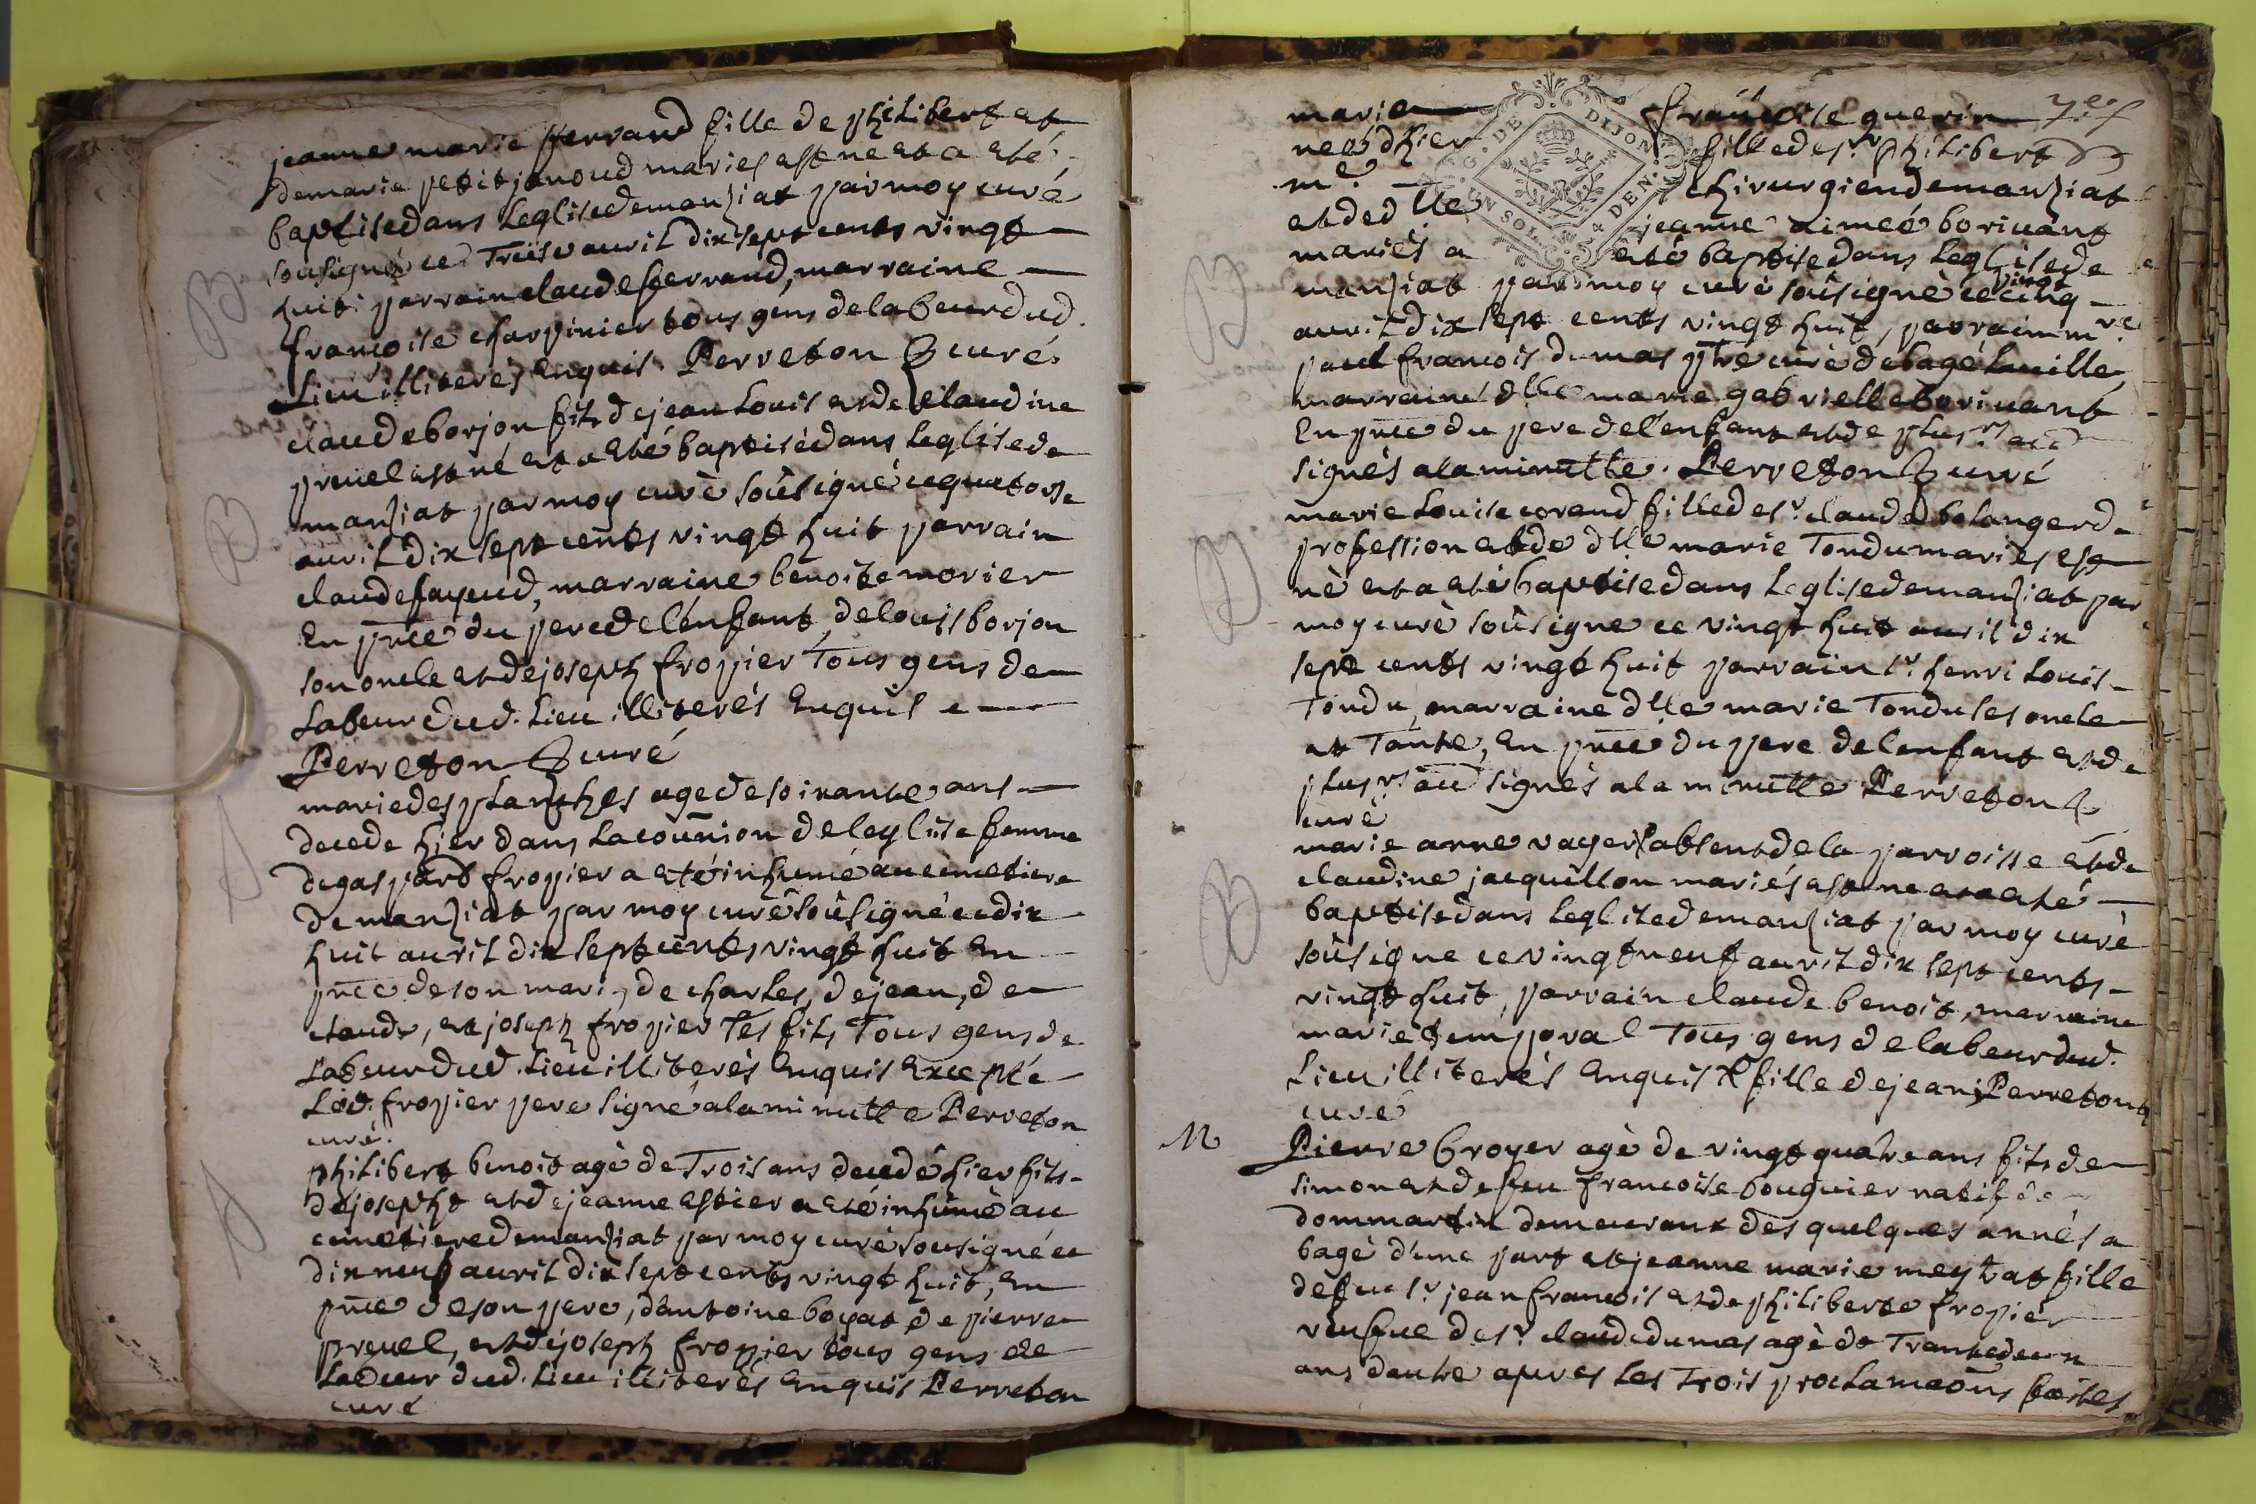 jeanne marie ferrand fille de philibert et
demarie petitjanoud mariés est ne et a eté
baptisedans leglisedemanziat par moy curé
sousigné ce Treise auril dix sept cents vingt
huit: parrain claudeferrand, marraine
francoise charpinier tous gens delabeurdud.
Lieu illiterés enquis. Perreton curé.
claudeborjon fils dejean Louis et de claudine
pruel est né et a eté baptisédans leglisede
manziat par moy curè soûsigné cequatorze
auril dix sept cents vingt huit parrain
claudefayeud, marraine benoite morier
En pnce du pere delenfant, delouis borjon
son oncle et dejoseph fropier Tous gens de
Labeur dud. Lieu illiterés Enquis
Perreton curé
mariedesplanches agedesoixante ans
decede hier dans lacoûnion deleglise femme
degaspard fropier a eté inhumé aucimetiere
demanziat par moy curé soûsigné cedix
huit auril dix sept cents vingt huit en
pnce deson mari, de charles, dejean, de
claude, et joseph fropier ses fils Tous gens de
Labeurdud. Lieu illiterés enquis Excepté
Led. fropier pere signé alaminutte Perreton
curé.
philibert benoit agè de Trois ans decedé hier fils
dejoseph et dejeanne astier a eté inhumè au
cimetieredemanziat par moy curè sousigné ce
dix neuf auril dix sept cents vingt huit, en
pnce deson pere, dantoine boyat de pierre
preuel, et dejoseph fropier tous gens de
Labeur dud. Lieu illiterés enquis Perreton
curé
marie francoise guerin
neé d'hier fille de sr. philibert
me. chirurgiendemanziat
et de dlle jeanne aimeé boriuant
mariés a eté baptisedans leglisede
manziat par moy curé soûsigné ce vingt cinq
auril dix sept cents vingt huit, parrain mre
paul francois dumas ptre curè debagé Lauille
marraine dlle marie gabrielle boriuant
En pnce du pere delenfant et de plusrs
signés alaminutte. Perreton curé
marie Louise corand fillede sr. claude bolangerde
profession et de dlle marie Tondu mariés est
nè et a eté baptisedans Leglisedemanziat par
moy curè soûsigne ce vingt huit auril dix
sept cents vingt huit parrain sr. henri Louis
Tondu, marraine dlle marie Tondu ses oncle
et Tante, En pnce du pere delenfant et de
plusrs au signés ala minutte Perreton
curé
marie anne vayer absent de la parroisse et de
claudine jacquillon mariés est ne et a eté
baptisedans leglisedemanziat par moy curè
soûsigne ce vingt neuf auril dix sept cents
vingt huit, parrain claude benoit, marraine
marie temporal Tous gens delabeurdud.
Lieu illiterés enquis fille dejean Perreton
curé
M Pierre broyer agè de vingt quatre ans fils de
simon et de feu francoise bouguier natif de
dommartin demeurant des quelques annés a
bagé d'une part et jeanne marie meytat fille
defeu sr jean francois et de philiberte fropier
veufue de sr claudedumas agé de Trantedeux
ans dautre apres les Trois proclamaõns faites
G. DE DIJON
SOL. 4 DEN.